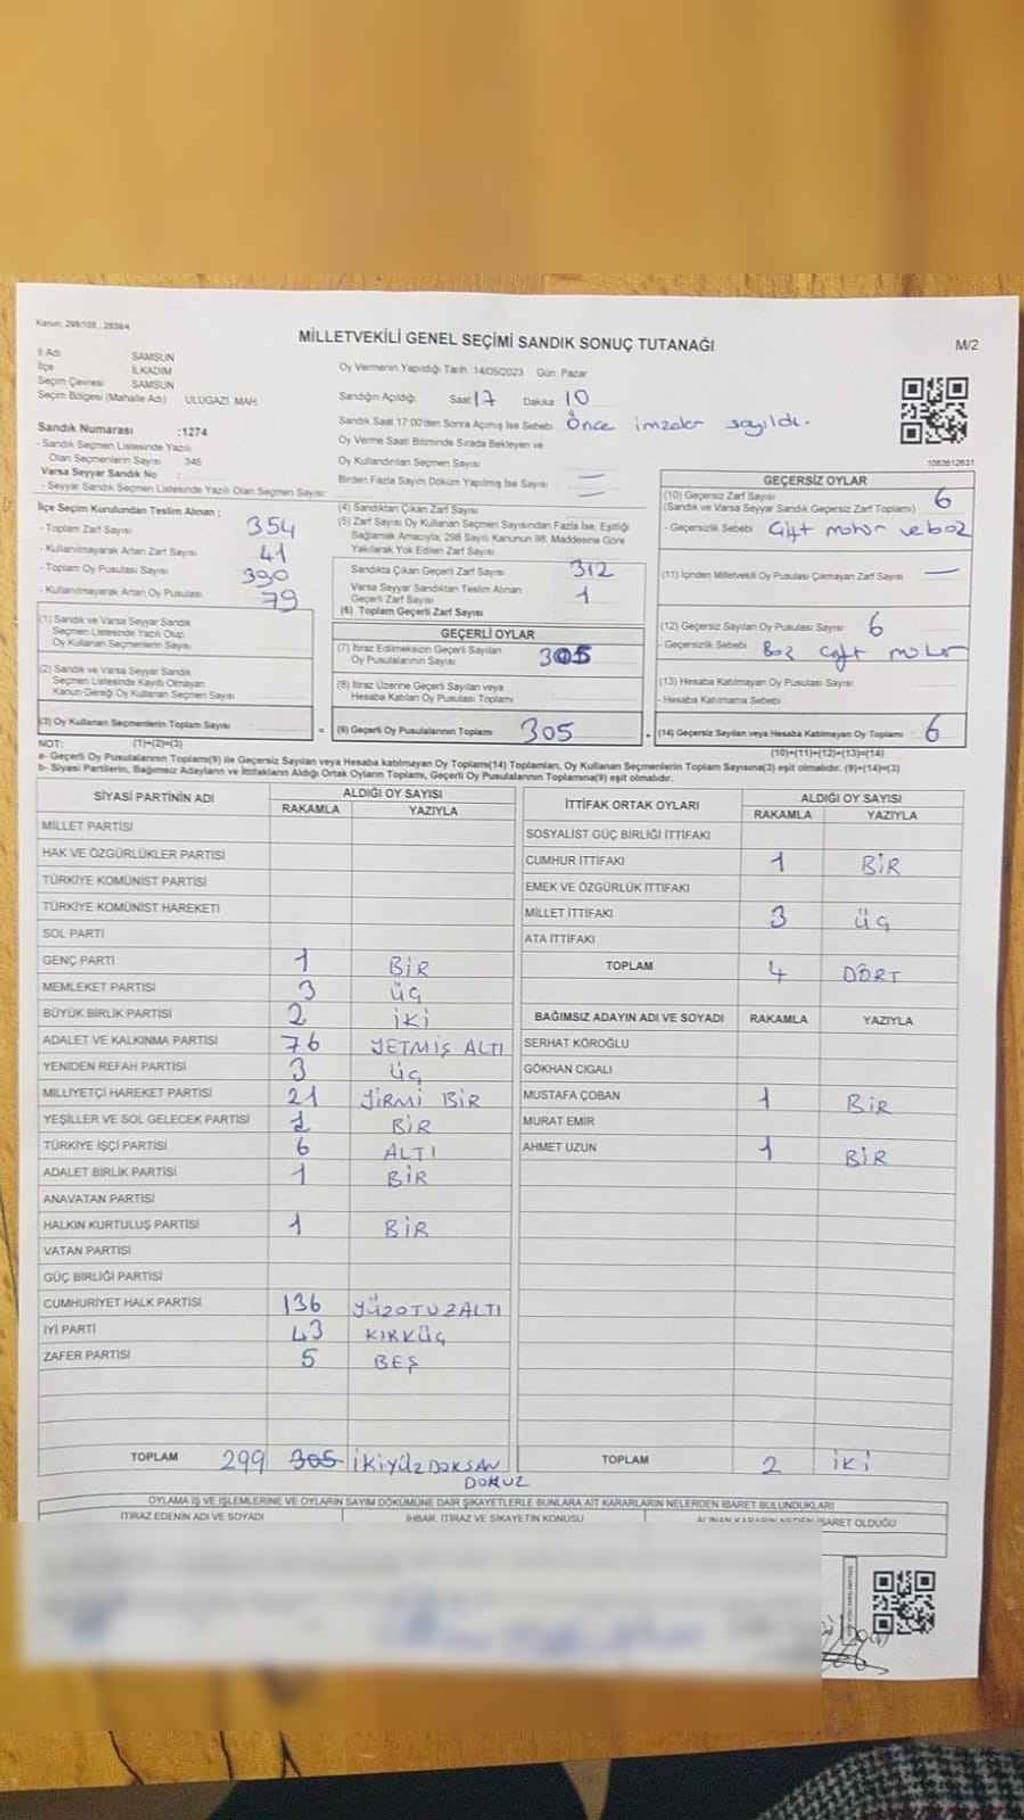 Kanun: 298/105 , 2839/4
MİLLETVEKİLİ GENEL SEÇİMİ SANDIK SONUÇ TUTANAĞI
M/2
İl Adı SAMSUN
İlçe İLKADIM
Seçim Çevresi SAMSUN
Seçim Bölgesi (Mahalle Adı) ULUGAZİ MAH.
Oy Vermenin Yapıldığı Tarih :14/05/2023 Gün: Pazar
Sandığın Açıldığı Saat 17 Dakika 10
Sandık Saat 17:00'den Sonra Açılmış İse Sebebi Önce imzalar sayıldı.
Oy Verme Saati Bitiminde Sırada Bekleyen ve
Oy Kullandırılan Seçmen Sayısı
Birden Fazla Sayım Döküm Yapılmış İse Sayısı
Sandık Numarası :1274
- Sandık Seçmen Listesinde Yazılı
Olan Seçmenlerin Sayısı 346
Varsa Seyyar Sandık No :
- Seyyar Sandık Seçmen Listesinde Yazılı Olan Seçmen Sayısı:
1083612631
İlçe Seçim Kurulundan Teslim Alınan ;
- Toplam Zarf Sayısı 354
- Kullanılmayarak Artan Zarf Sayısı 41
- Toplam Oy Pusulası Sayısı 390
- Kullanılmayarak Artan Oy Pusulası 79
(1) Sandık ve Varsa Seyyar Sandık
Seçmen Listesinde Yazılı Olup
Oy Kullanan Seçmenlerin Sayısı
(2) Sandık ve Varsa Seyyar Sandık
Seçmen Listesinde Kayıtlı Olmayan
Kanun Gereği Oy Kullanan Seçmen Sayısı
(3) Oy Kullanan Seçmenlerin Toplam Sayısı
(4) Sandıktan Çıkan Zarf Sayısı
(5) Zarf Sayısı Oy Kullanan Seçmen Sayısından Fazla İse, Eşitliği
Sağlamak Amacıyla, 298 Sayılı Kanunun 98. Maddesine Göre
Yakılarak Yok Edilen Zarf Sayısı
Sandıkta Çıkan Geçerli Zarf Sayısı 312
Varsa Seyyar Sandıktan Teslim Alınan
Geçerli Zarf Sayısı 1
(6) Toplam Geçerli Zarf Sayısı
GEÇERLİ OYLAR
(7) İtiraz Edilmeksizin Geçerli Sayılan
Oy Pusulalarının Sayısı 305
(8) İtiraz Üzerine Geçerli Sayılan veya
Hesaba Katılan Oy Pusulası Toplamı
(9) Geçerli Oy Pusulalarının Toplamı 305
GEÇERSİZ OYLAR
(10) Geçersiz Zarf Sayısı 6
(Sandık ve Varsa Seyyar Sandık Geçersiz Zarf Toplamı)
- Geçersizlik Sebebi Çift mühür ve boz
(11) İçinden Milletvekili Oy Pusulası Çıkmayan Zarf Sayısı —
(12) Geçersiz Sayılan Oy Pusulası Sayısı 6
- Geçersizlik Sebebi Boz çift mühür
(13) Hesaba Katılmayan Oy Pusulası Sayısı
- Hesaba Katılmama Sebebi
(14) Geçersiz Sayılan veya Hesaba Katılmayan Oy Toplamı 6
NOT: (1)+(2)=(3)
(10)+(11)+(12)+(13)=(14)
a- Geçerli Oy Pusulalarının Toplamı(9) ile Geçersiz Sayılan veya Hesaba katılmayan Oy Toplamı(14) Toplamları, Oy Kullanan Seçmenlerin Toplam Sayısına(3) eşit olmalıdır. (9)+(14)=(3)
b- Siyasi Partilerin, Bağımsız Adayların ve İttifakların Aldığı Ortak Oyların Toplamı, Geçerli Oy Pusulalarının Toplamına(9) eşit olmalıdır.
SİYASİ PARTİNİN ADI ALDIĞI OY SAYISI
RAKAMLA YAZIYLA
MİLLET PARTİSİ
HAK VE ÖZGÜRLÜKLER PARTİSİ
TÜRKİYE KOMÜNİST PARTİSİ
TÜRKİYE KOMÜNİST HAREKETİ
SOL PARTİ
GENÇ PARTİ 1 BİR
MEMLEKET PARTİSİ 3 ÜÇ
BÜYÜK BİRLİK PARTİSİ 2 İKİ
ADALET VE KALKINMA PARTİSİ 76 YETMİŞ ALTI
YENİDEN REFAH PARTİSİ 3 ÜÇ
MİLLİYETÇİ HAREKET PARTİSİ 21 YİRMİ BİR
YEŞİLLER VE SOL GELECEK PARTİSİ 1 BİR
TÜRKİYE İŞÇİ PARTİSİ 6 ALTI
ADALET BİRLİK PARTİSİ 1 BİR
ANAVATAN PARTİSİ
HALKIN KURTULUŞ PARTİSİ 1 BİR
VATAN PARTİSİ
GÜÇ BİRLİĞİ PARTİSİ
CUMHURİYET HALK PARTİSİ 136 YÜZOTUZALTI
İYİ PARTİ 43 KIRKÜÇ
ZAFER PARTİSİ 5 BEŞ
TOPLAM 299 305 İKİYÜZ DOKSAN
DOKUZ
İTTİFAK ORTAK OYLARI ALDIĞI OY SAYISI
RAKAMLA YAZIYLA
SOSYALİST GÜÇ BİRLİĞİ İTTİFAKI
CUMHUR İTTİFAKI 1 BİR
EMEK VE ÖZGÜRLÜK İTTİFAKI
MİLLET İTTİFAKI 3 ÜÇ
ATA İTTİFAKI
TOPLAM 4 DÖRT
BAĞIMSIZ ADAYIN ADI VE SOYADI RAKAMLA YAZIYLA
SERHAT KÖROĞLU
GÖKHAN CIGALI
MUSTAFA ÇOBAN 1 BİR
MURAT EMİR
AHMET UZUN 1 BİR
TOPLAM 2 İKİ
OYLAMA İŞ VE İŞLEMLERİNE VE OYLARIN SAYIM DÖKÜMÜNE DAİR ŞİKAYETLERLE BUNLARA AİT KARARLARIN NELERDEN İBARET BULUNDUKLARI
İTİRAZ EDENİN ADI VE SOYADI İHBAR, İTİRAZ VE ŞİKAYETİN KONUSU ALINAN KARARIN NEDEN İBARET OLDUĞU